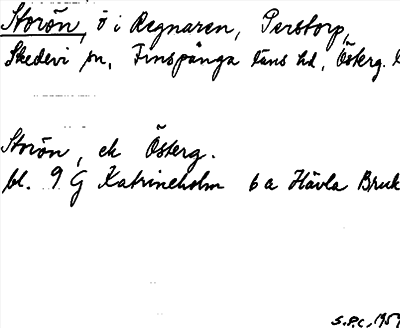 Storön, ö i Regnaren, Perstorp,
Skedevi sn, Finspånga läns hd, Österg. l
Storön, ek Österg.
bl. 9 G Katrineholm 6 a Hävla Bruk
S.P.C., 1959